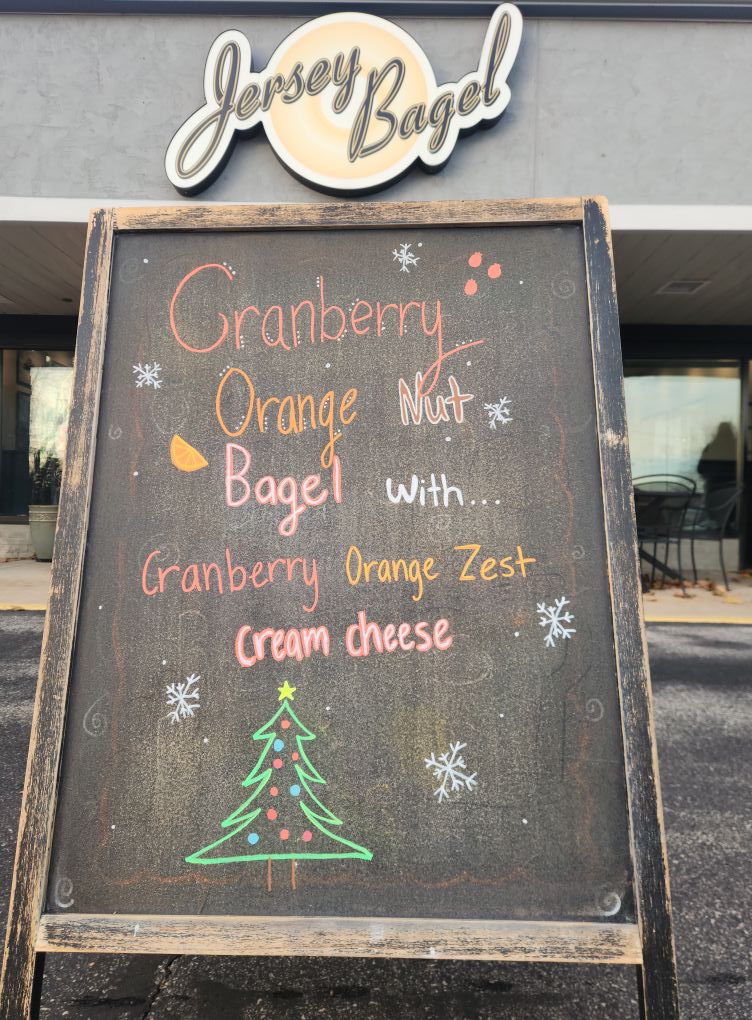 Jersey Bagel
Cranberry
Orange Nut
Bagel with...
Cranberry Orange Zest
Cream cheese